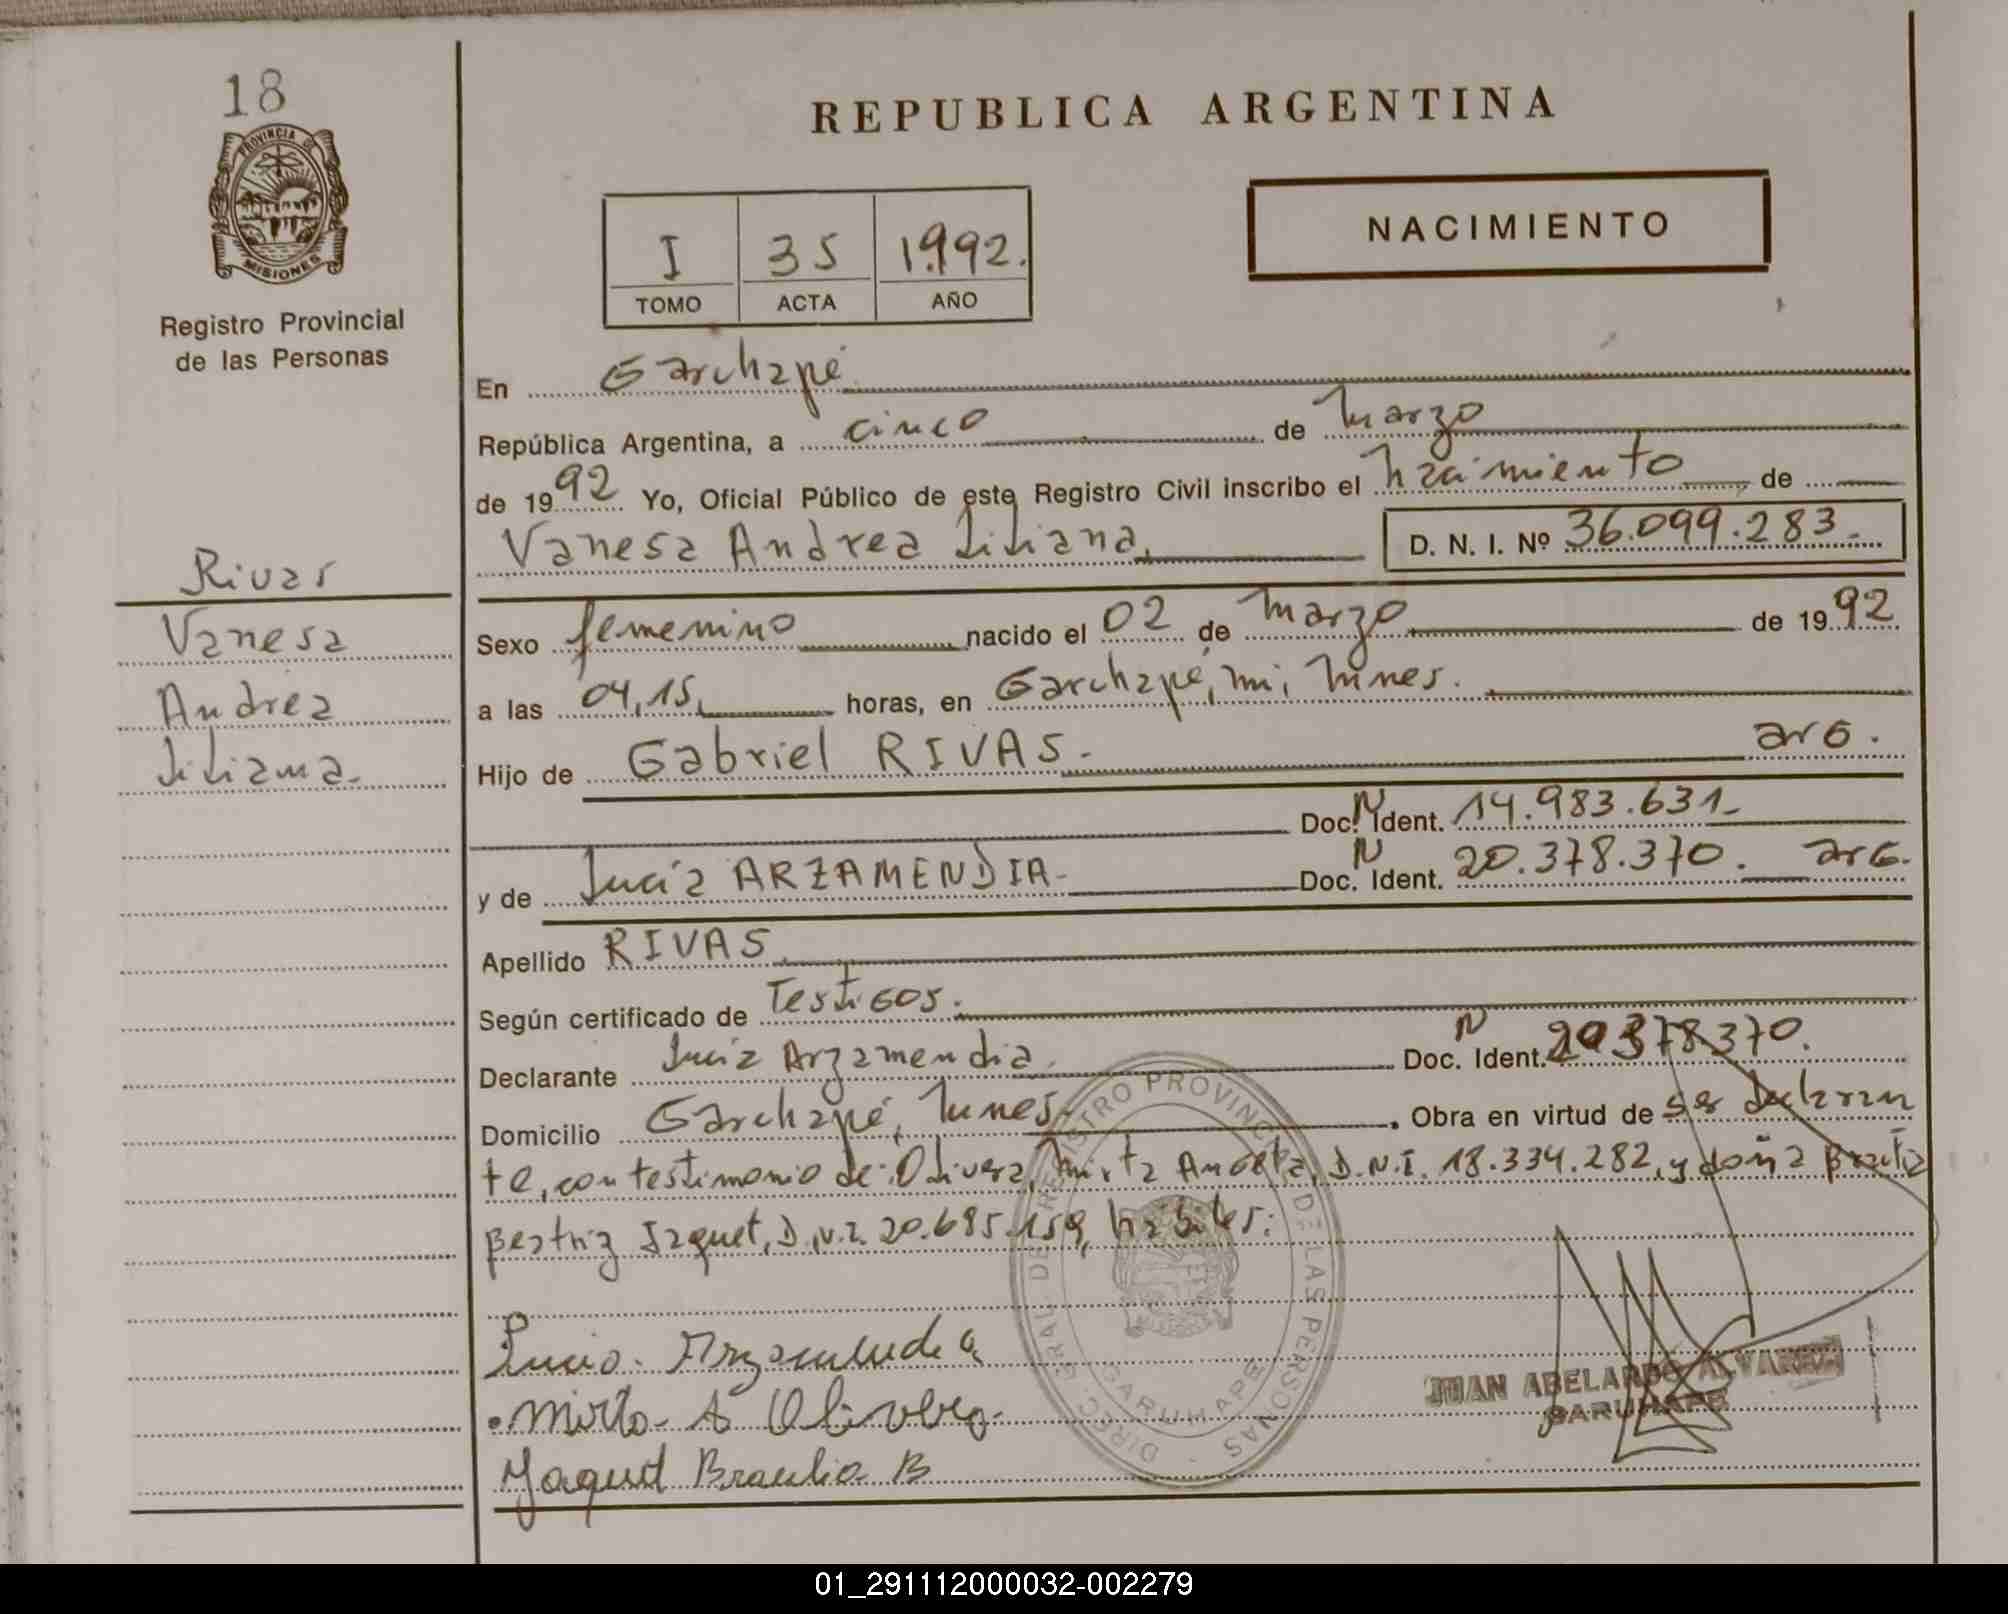 18
PROVINCIA DE
MISIONES
Registro Provincial
de las Personas
Rivas
Vanesa
Andrea
Liliana.
REPUBLICA ARGENTINA
I 35 1992.
TOMO ACTA AÑO
NACIMIENTO
En Garuhapé
República Argentina, a cinco de marzo
de 1992 Yo, Oficial Público de este Registro Civil inscribo el nacimiento de
Vanesa Andrea Liliana, D. N. I. Nº 36.099.283.-
Sexo femenino nacido el 02 de marzo de 1992
a las 04,15, horas, en Garuhapé,
Hijo de Gabriel RIVAS. arg.
Doc. N Ident. 14.983.631-
y de Lucía ARZAMENDIA- Doc. N Ident. 20.378.370. arg.
Apellido RIVAS
Según certificado de Testigos.
Declarante Lucía Arzamendia. Doc. N Ident. 20378370.
Domicilio Garuhapé, . Obra en virtud de ser declaran
te, con testimonio de: Olivera, Mirta D.N.I. 18.334.282, y doña Braulia
Beatriz Jaquet, D.N.I. 20.685.159, hábiles:
Lucia. Arzamendia
Mirta A Olivera
Yaquet Braulia B
DIREC. GRAL. DE REGISTRO PROVINCIAL DE LAS PERSONAS
GARUHAPE
JUAN ABELARDO ALVAREZ
GARUHAPE
01_291112000032-002279